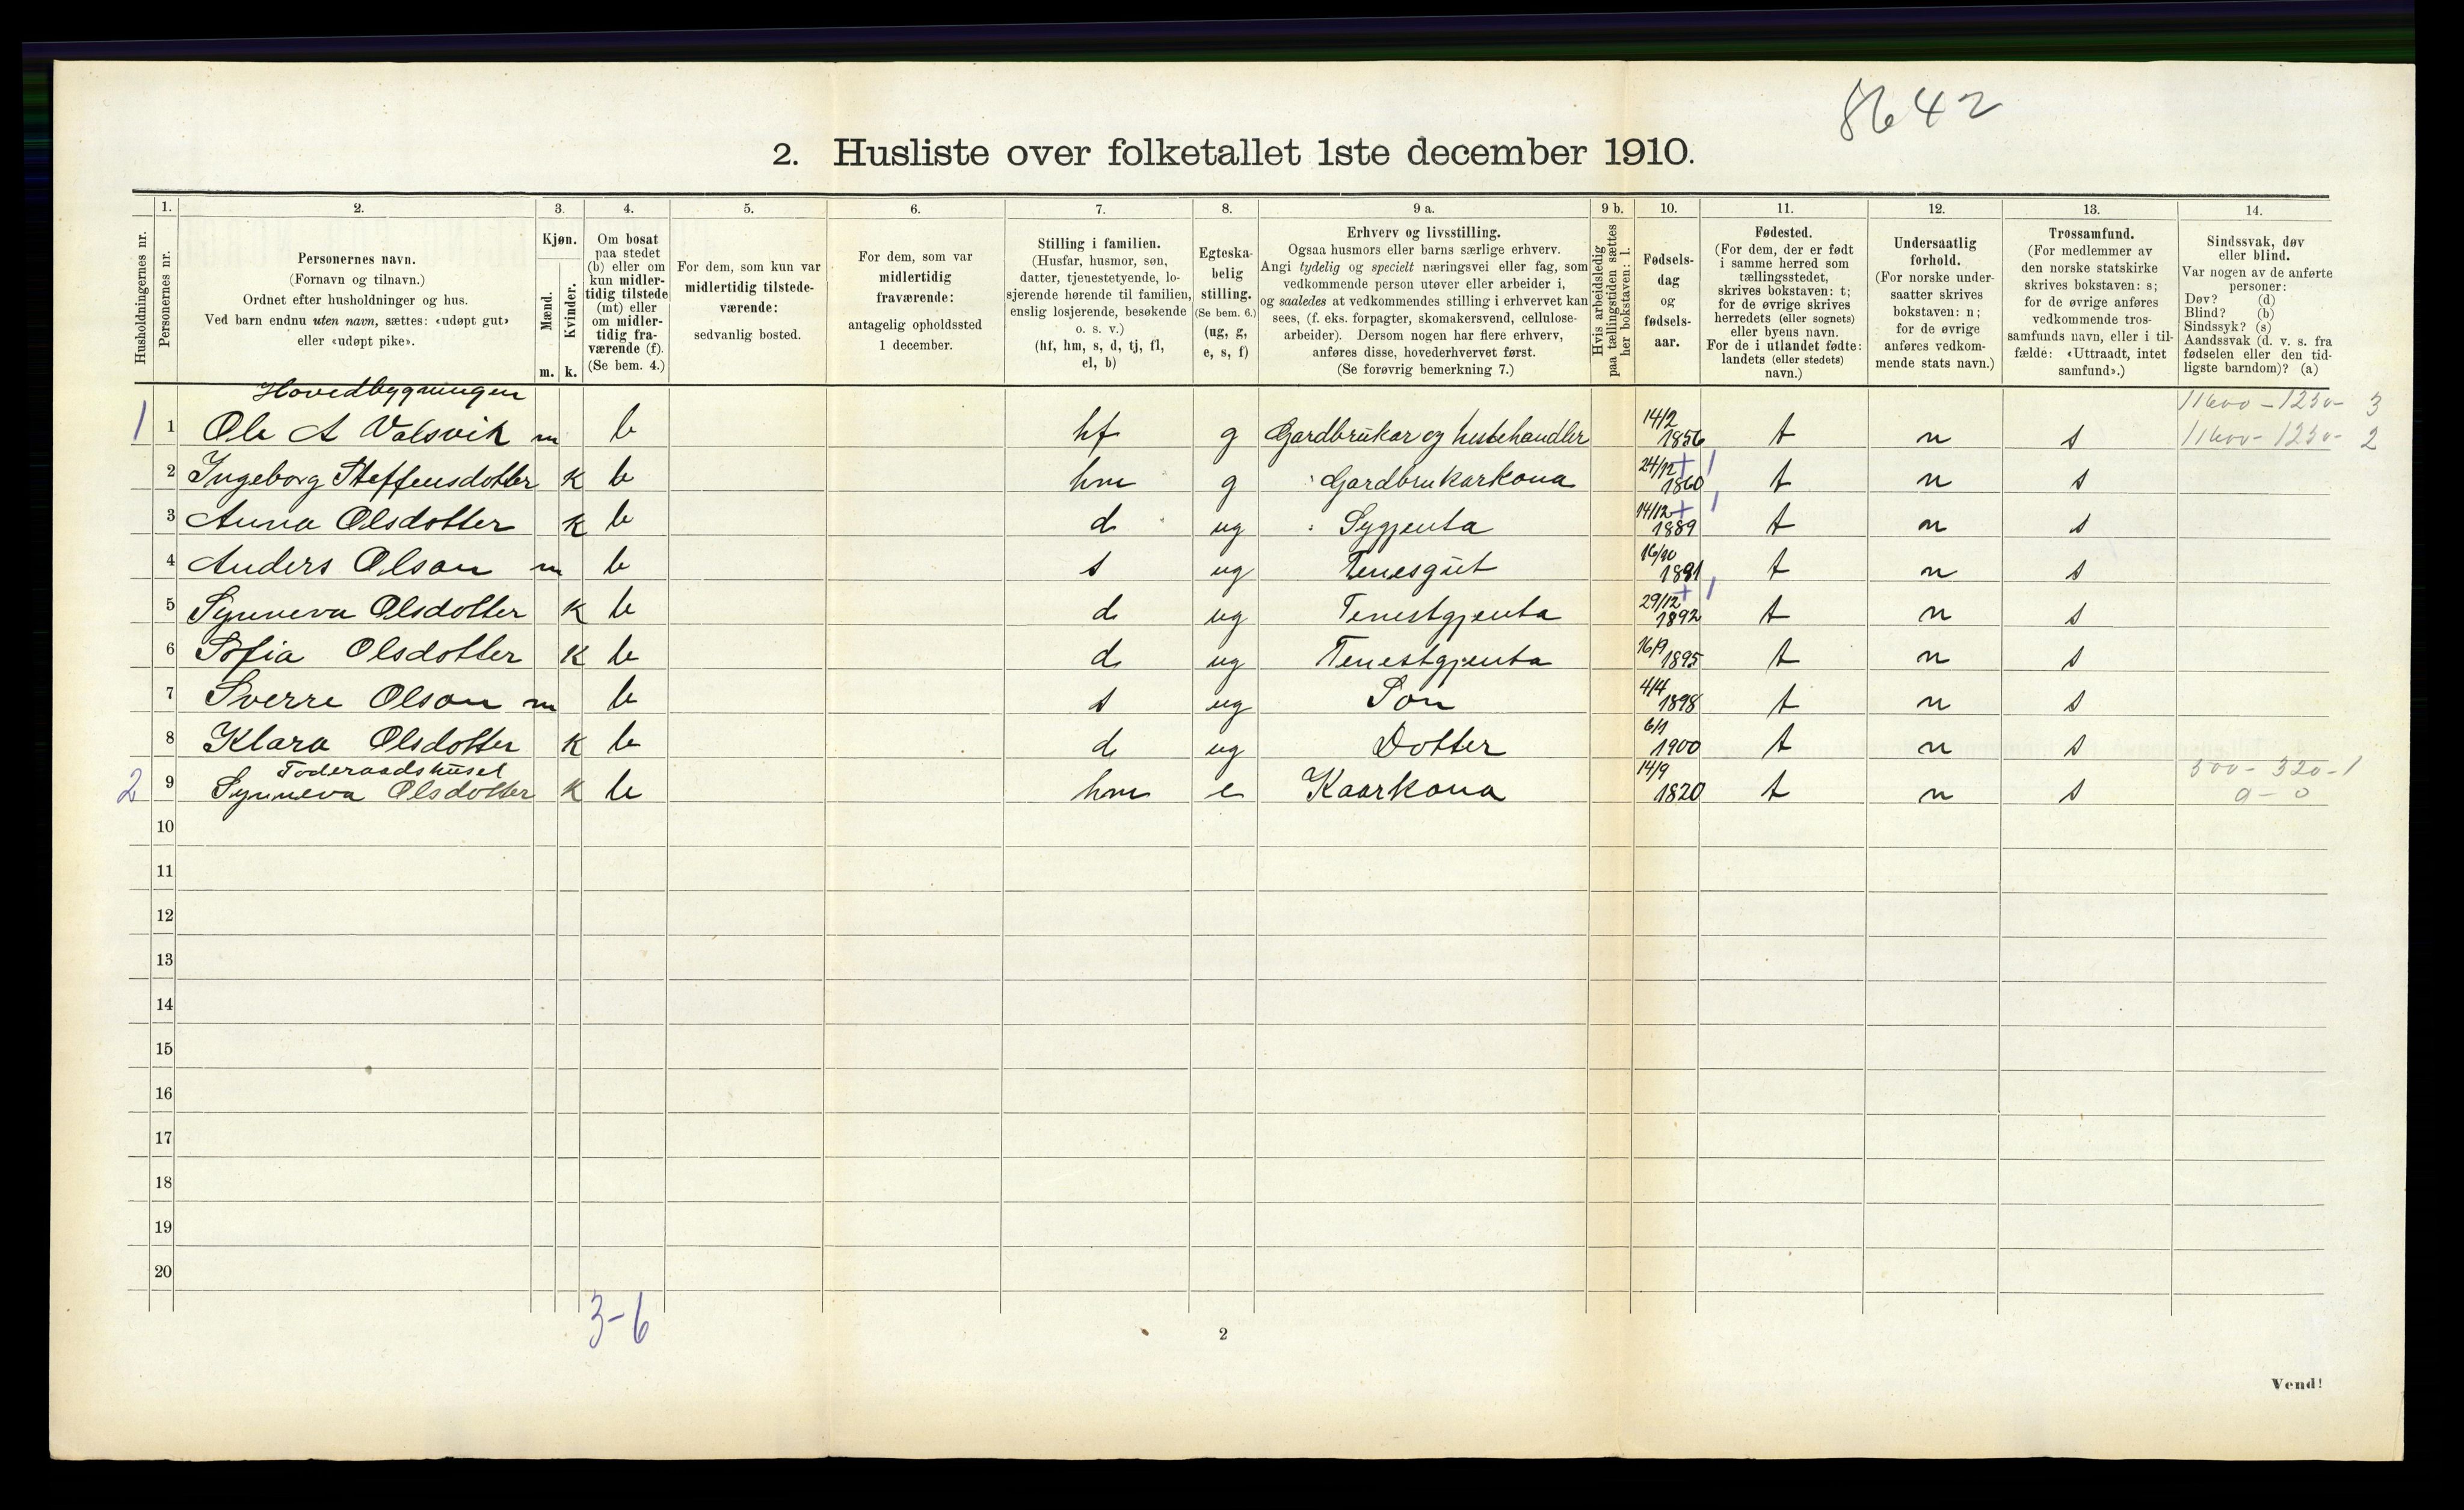 8642
2. Husliste over folketallet 1ste december 1910.
Husholdningernes nr.
1.
Personernes nr.
2.
Personernes navn.
(Fornavn og tilnavn.)
Ordnet efter husholdninger og hus.
Ved barn endnu uten navn, sættes: «udøpt gut»
eller «udøpt pike».
3.
Kjøn.
Mænd.
Kvinder.
m. k.
4.
Om bosat
paa stedet
(b) eller om
kun midler-
tidig tilstede
(mt) eller
om midler-
tidig fra-
værende (f).
(Se bem. 4.)
5.
For dem, som kun var
midlertidig tilstede-
værende:
sedvanlig bosted.
6.
For dem, som var
midlertidig
fraværende:
antagelig opholdssted
1 december.
7.
Stilling i familien.
(Husfar, husmor, søn,
datter, tjenestetyende, lo-
sjerende hørende til familien,
enslig losjerende, besøkende
o. s. v.)
(hf, hm, s, d, tj, fl,
el, b)
8.
Egteska-
belig
stilling.
(Se bem. 6.)
(ug, g,
e, s, f)
9 a.
Erhverv og livsstilling.
Ogsaa husmors eller barns særlige erhverv.
Angi tydelig og specielt næringsvei eller fag, som
vedkommende person utøver eller arbeider i,
og saaledes at vedkommendes stilling i erhvervet kan
sees, (f. eks. forpagter, skomakersvend, cellulose-
arbeider). Dersom nogen har flere erhverv,
anføres disse, hovederhvervet først.
(Se forøvrig bemerkning 7.)
9 b.
Hvis arbeidsledig
paa tællingstiden sættes
her bokstaven: l.
10.
Fødsels-
dag
og
fødsels-
aar.
11.
Fødested.
(For dem, der er født
i samme herred som
tællingsstedet,
skrives bokstaven: t;
for de øvrige skrives
herredets (eller sognets)
eller byens navn.
For de i utlandet fødte:
landets (eller stedets)
navn.)
12.
Undersaatlig
forhold.
(For norske under-
saatter skrives
bokstaven: n;
for de øvrige
anføres vedkom-
mende stats navn.)
13.
Trossamfund.
(For medlemmer av
den norske statskirke
skrives bokstaven: s;
for de øvrige anføres
vedkommende tros-
samfunds navn, eller i til-
fælde: «Uttraadt, intet
samfund».)
14.
Sindssvak, døv
eller blind.
Var nogen av de anførte
personer:
Døv? (d)
Blind? (b)
Sindssyk? (s)
Aandssvak (d. v. s. fra
fødselen eller den tid-
ligste barndom)? (a)
Hovedbygningen
11600 - 1230- 3
1 1 Ole A Valsvik m b hf g Gardbrukar og hestehandler 14/2 1856 t n s 11600- 1230- 2
2 Ingeborg Steffensdotter k b hm g Gardbrukarkona 24/12 1860 t n s
3 Anna Olsdotter k b d ug Sygjenta 14/12 1889 t n s
4 Anders Olson m b s ug Tenesgut 16/10 1891 t n s
5 Synneva Olsdotter k b d ug Tenestgjenta 29/12 1892 t n s
6 Sofia Olsdotter k b d ug Tenestgjenta 16/9 1895 t n s
7 Sverre Olson m b s ug Son 4/4 1898 t n s
8 Klara Olsdotter k b d ug Dotter 6/1 1900 t n s
Foderaadshuset
300 - 320 - 1
2 9 Synneva Olsdotter k b hm e Kaarkona 14/9 1820 t n s 0 - 0
10
11
12
13
14
15
16
17
18
19
20
3-6
2
Vend!